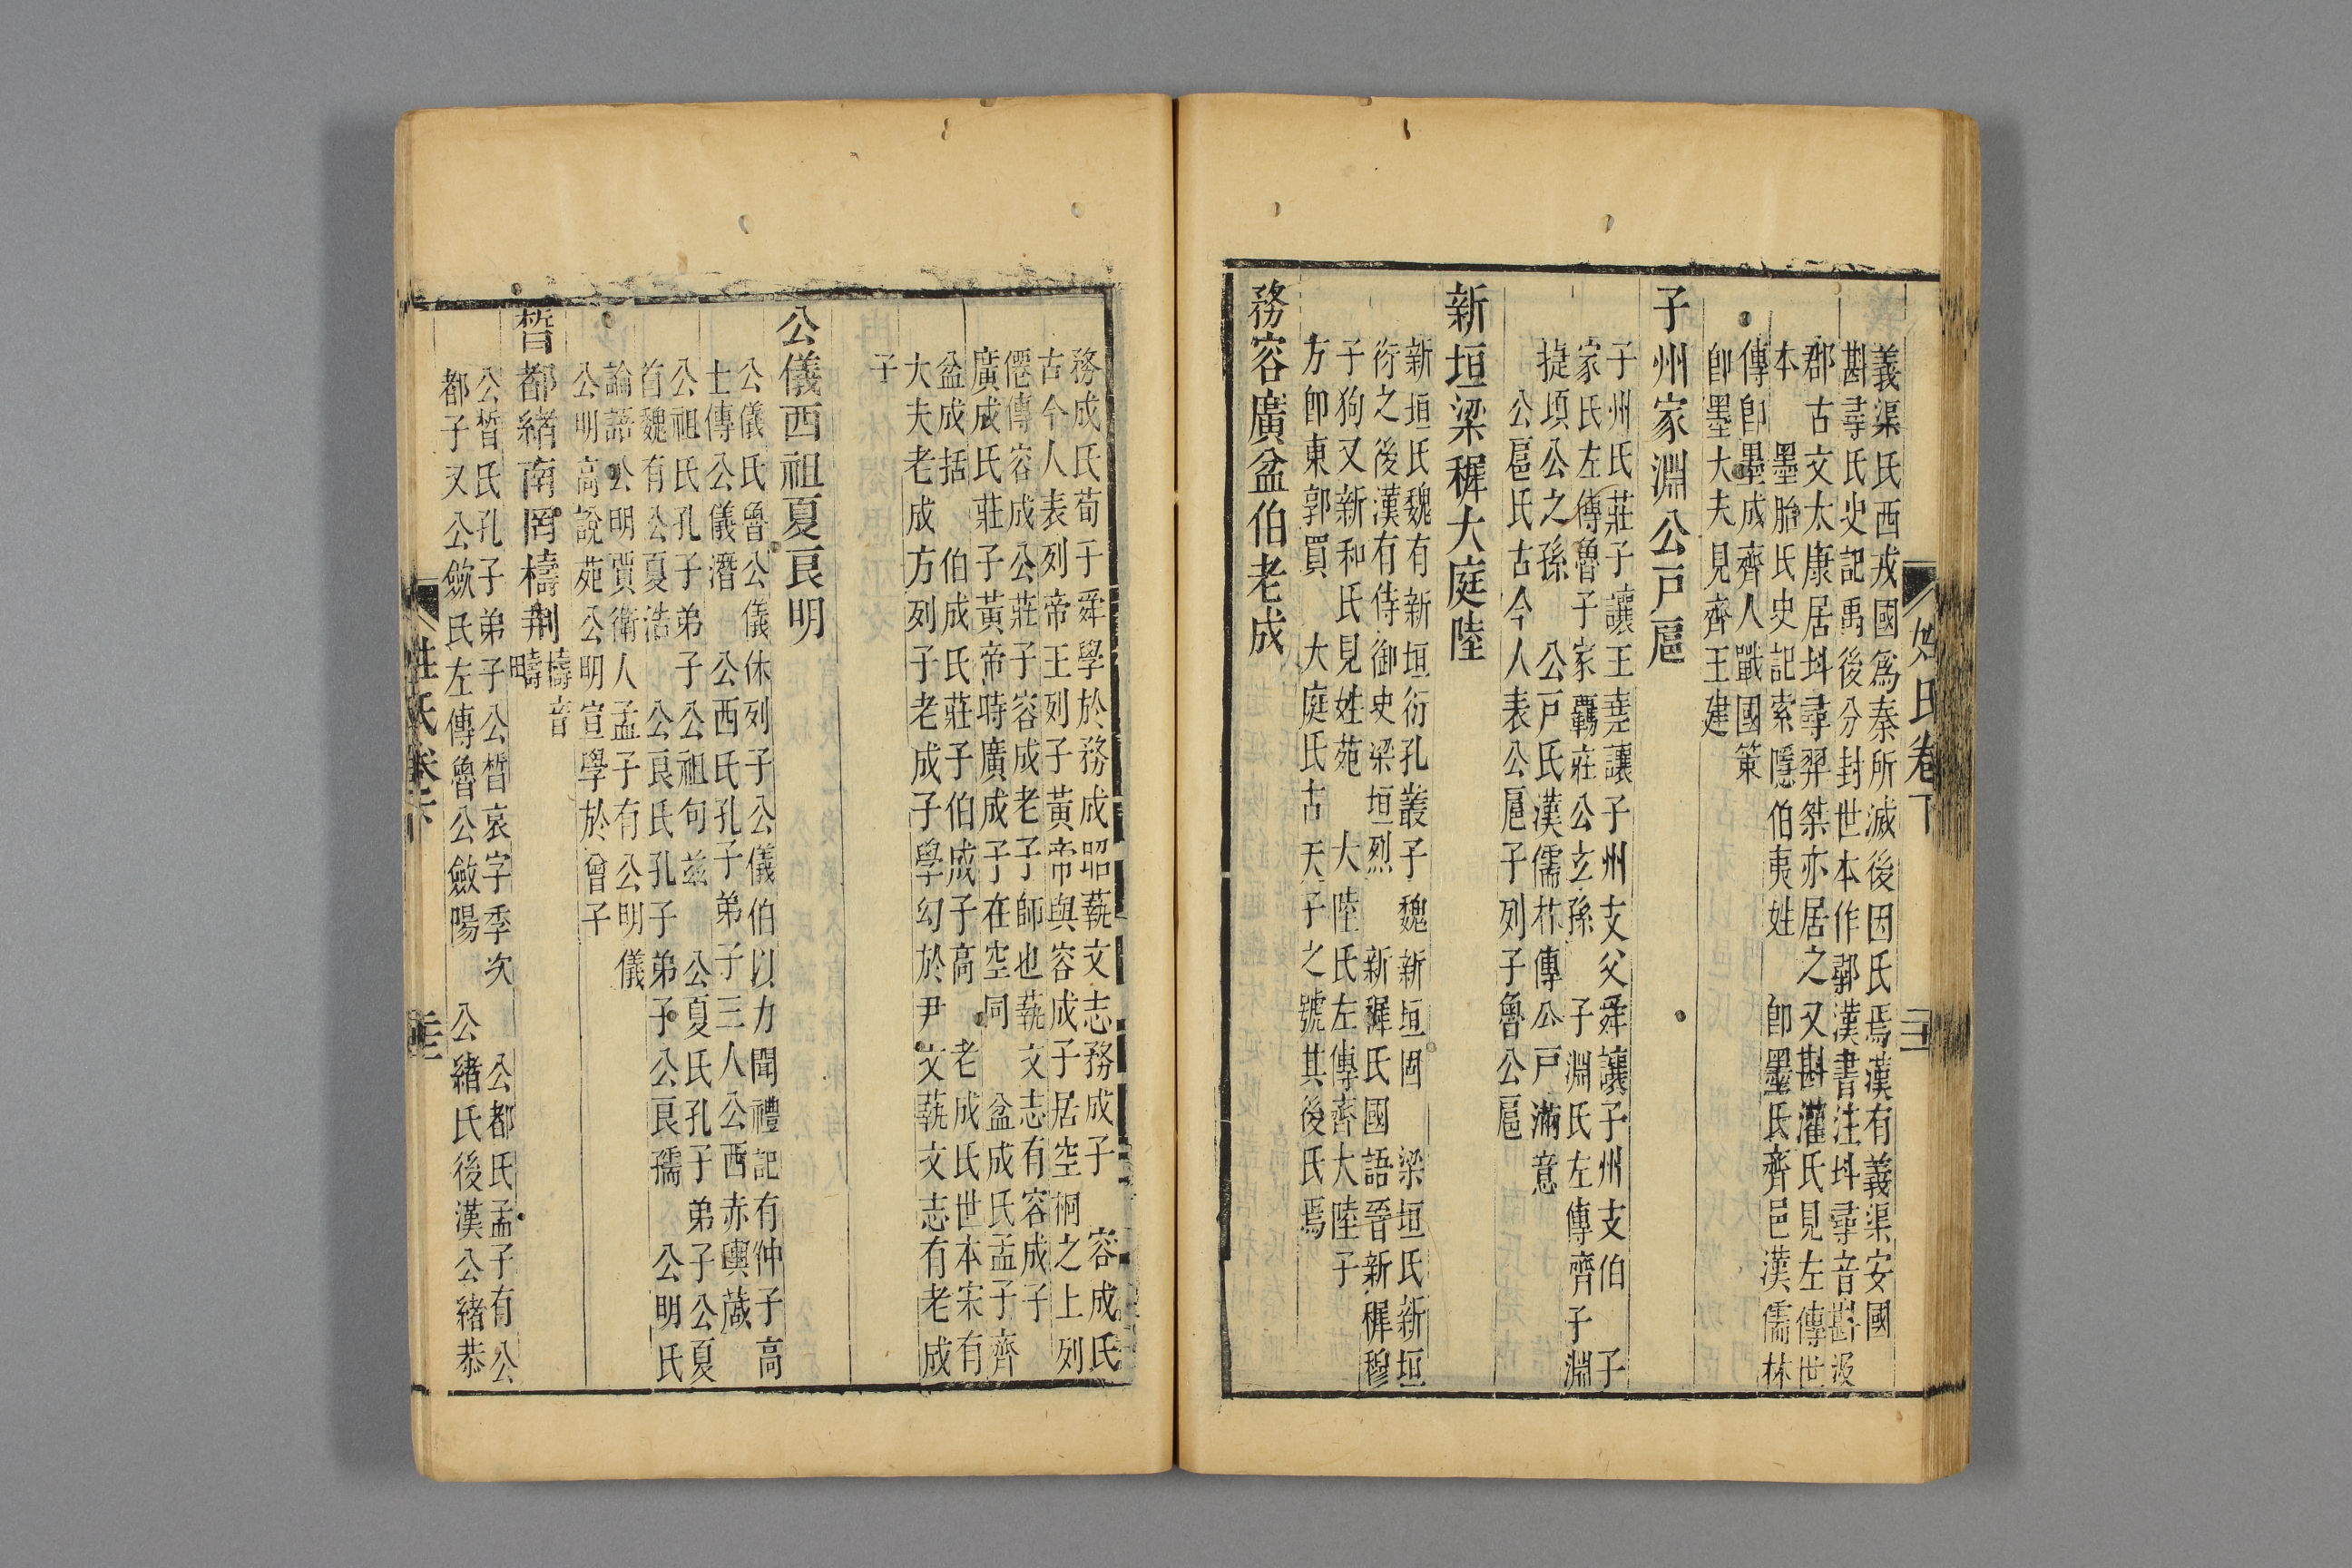 義渠氏西戎國爲秦所滅後因氏焉漢有義渠安國
斟尋氏史記禹後分封世本作鄩漢書注㪷尋音斟汲
郡古文太康居㪷尋羿桀亦居之 又斟灌氏見左傳世
本 墨胎氏史記索隱伯夷姓 卽墨氏齊邑漢儒林
傳卽墨成齊人戰國策
卽墨大夫見齊王建
子州家淵公戸扈
子州氏莊子讓王堯讓子州支父舜讓子州支伯 子
家氏左傳魯子家羈莊公玄孫 子淵氏左傳齊子淵
捷頃公之孫 公戸氏漢儒林傳公戸滿意
公扈氏古今人表公扈子列子魯公扈
新垣梁穉大庭陸
新垣氏魏有新垣衍孔叢子魏新垣固 梁垣氏新垣
衍之後漢有侍御史梁垣烈 新穉氏國語晉新穉穆
子狗又新和氏見姓苑 大陸氏左傳齊大陸子
方卽東郭賈 大庭氏古天子之號其後氏焉
務容廣盆伯老成
姓氏卷下
務成氏荀子舜學於務成昭蓺文志務成子 容成氏
古今人表列帝王列子黃帝與容成子居空桐之上列
僊傳容成公莊子容成老子師也蓺文志有容成子
廣成氏莊子黃帝時廣成子在空同 盆成氏孟子齊
盆成括 伯成氏莊子伯成子高 老成氏世本宋有
大夫老成方列子老成子學幻於尹文蓺文志有老成
子
公儀西祖夏良明
公儀氏魯公儀休列子公儀伯以力聞禮記有仲子高
士傳公儀潛 公西氏孔子弟子三人公西赤輿蒧
公祖氏孔子弟子公祖句兹 公夏氏孔子弟子公夏
首魏有公夏浩 公良氏孔子弟子公良孺 公明氏
論語公明賈衛人孟子有公明儀
公明高說苑公明宣學於曾子
晳都緒南罔檮荆 檮音疇
公晳氏孔子弟子公晳哀字季次 公都氏孟子有公
都子又公歛氏左傳魯公斂陽 公緒氏後漢公緒恭
姓氏卷下